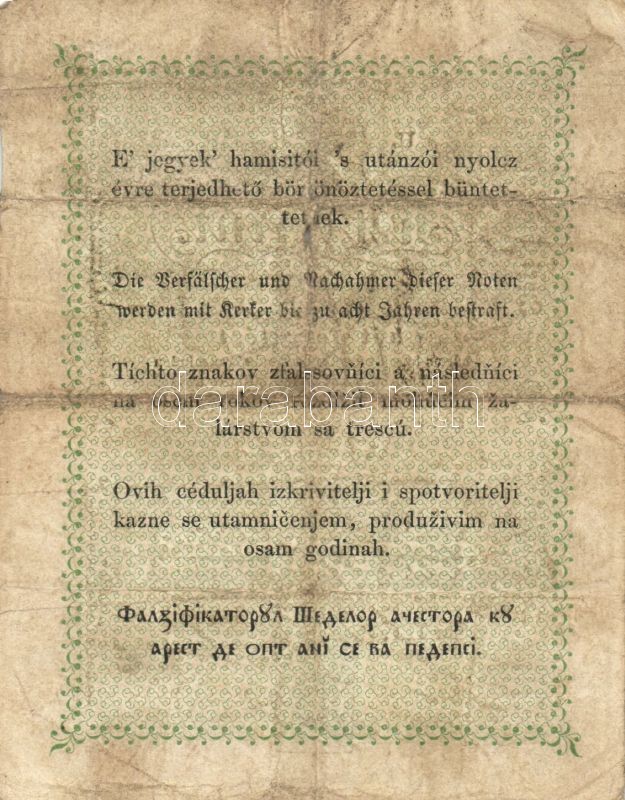 E' jegyek' hamisitói 's utánzói nyolcz
évre terjedhető bör önöztetéssel büntet-
tetnek.
Die Verfälscher und Nachahmer dieser Noten
werden mit Kerker bis zu acht Jahren bestraft.
Tíchto znakov zfalšovňíci a následňíci
na osem rokov
ža-
lárstvom sa trescú.
darabanth
Ovih céduljah izkrivitelji i spotvoritelji
kazne se utamničenjem, produživim na
osam godinah.
Фалꙃіфікаторꙋл Шеделор ачестора кꙋ
арест де опт анĭ се ва педепсі.